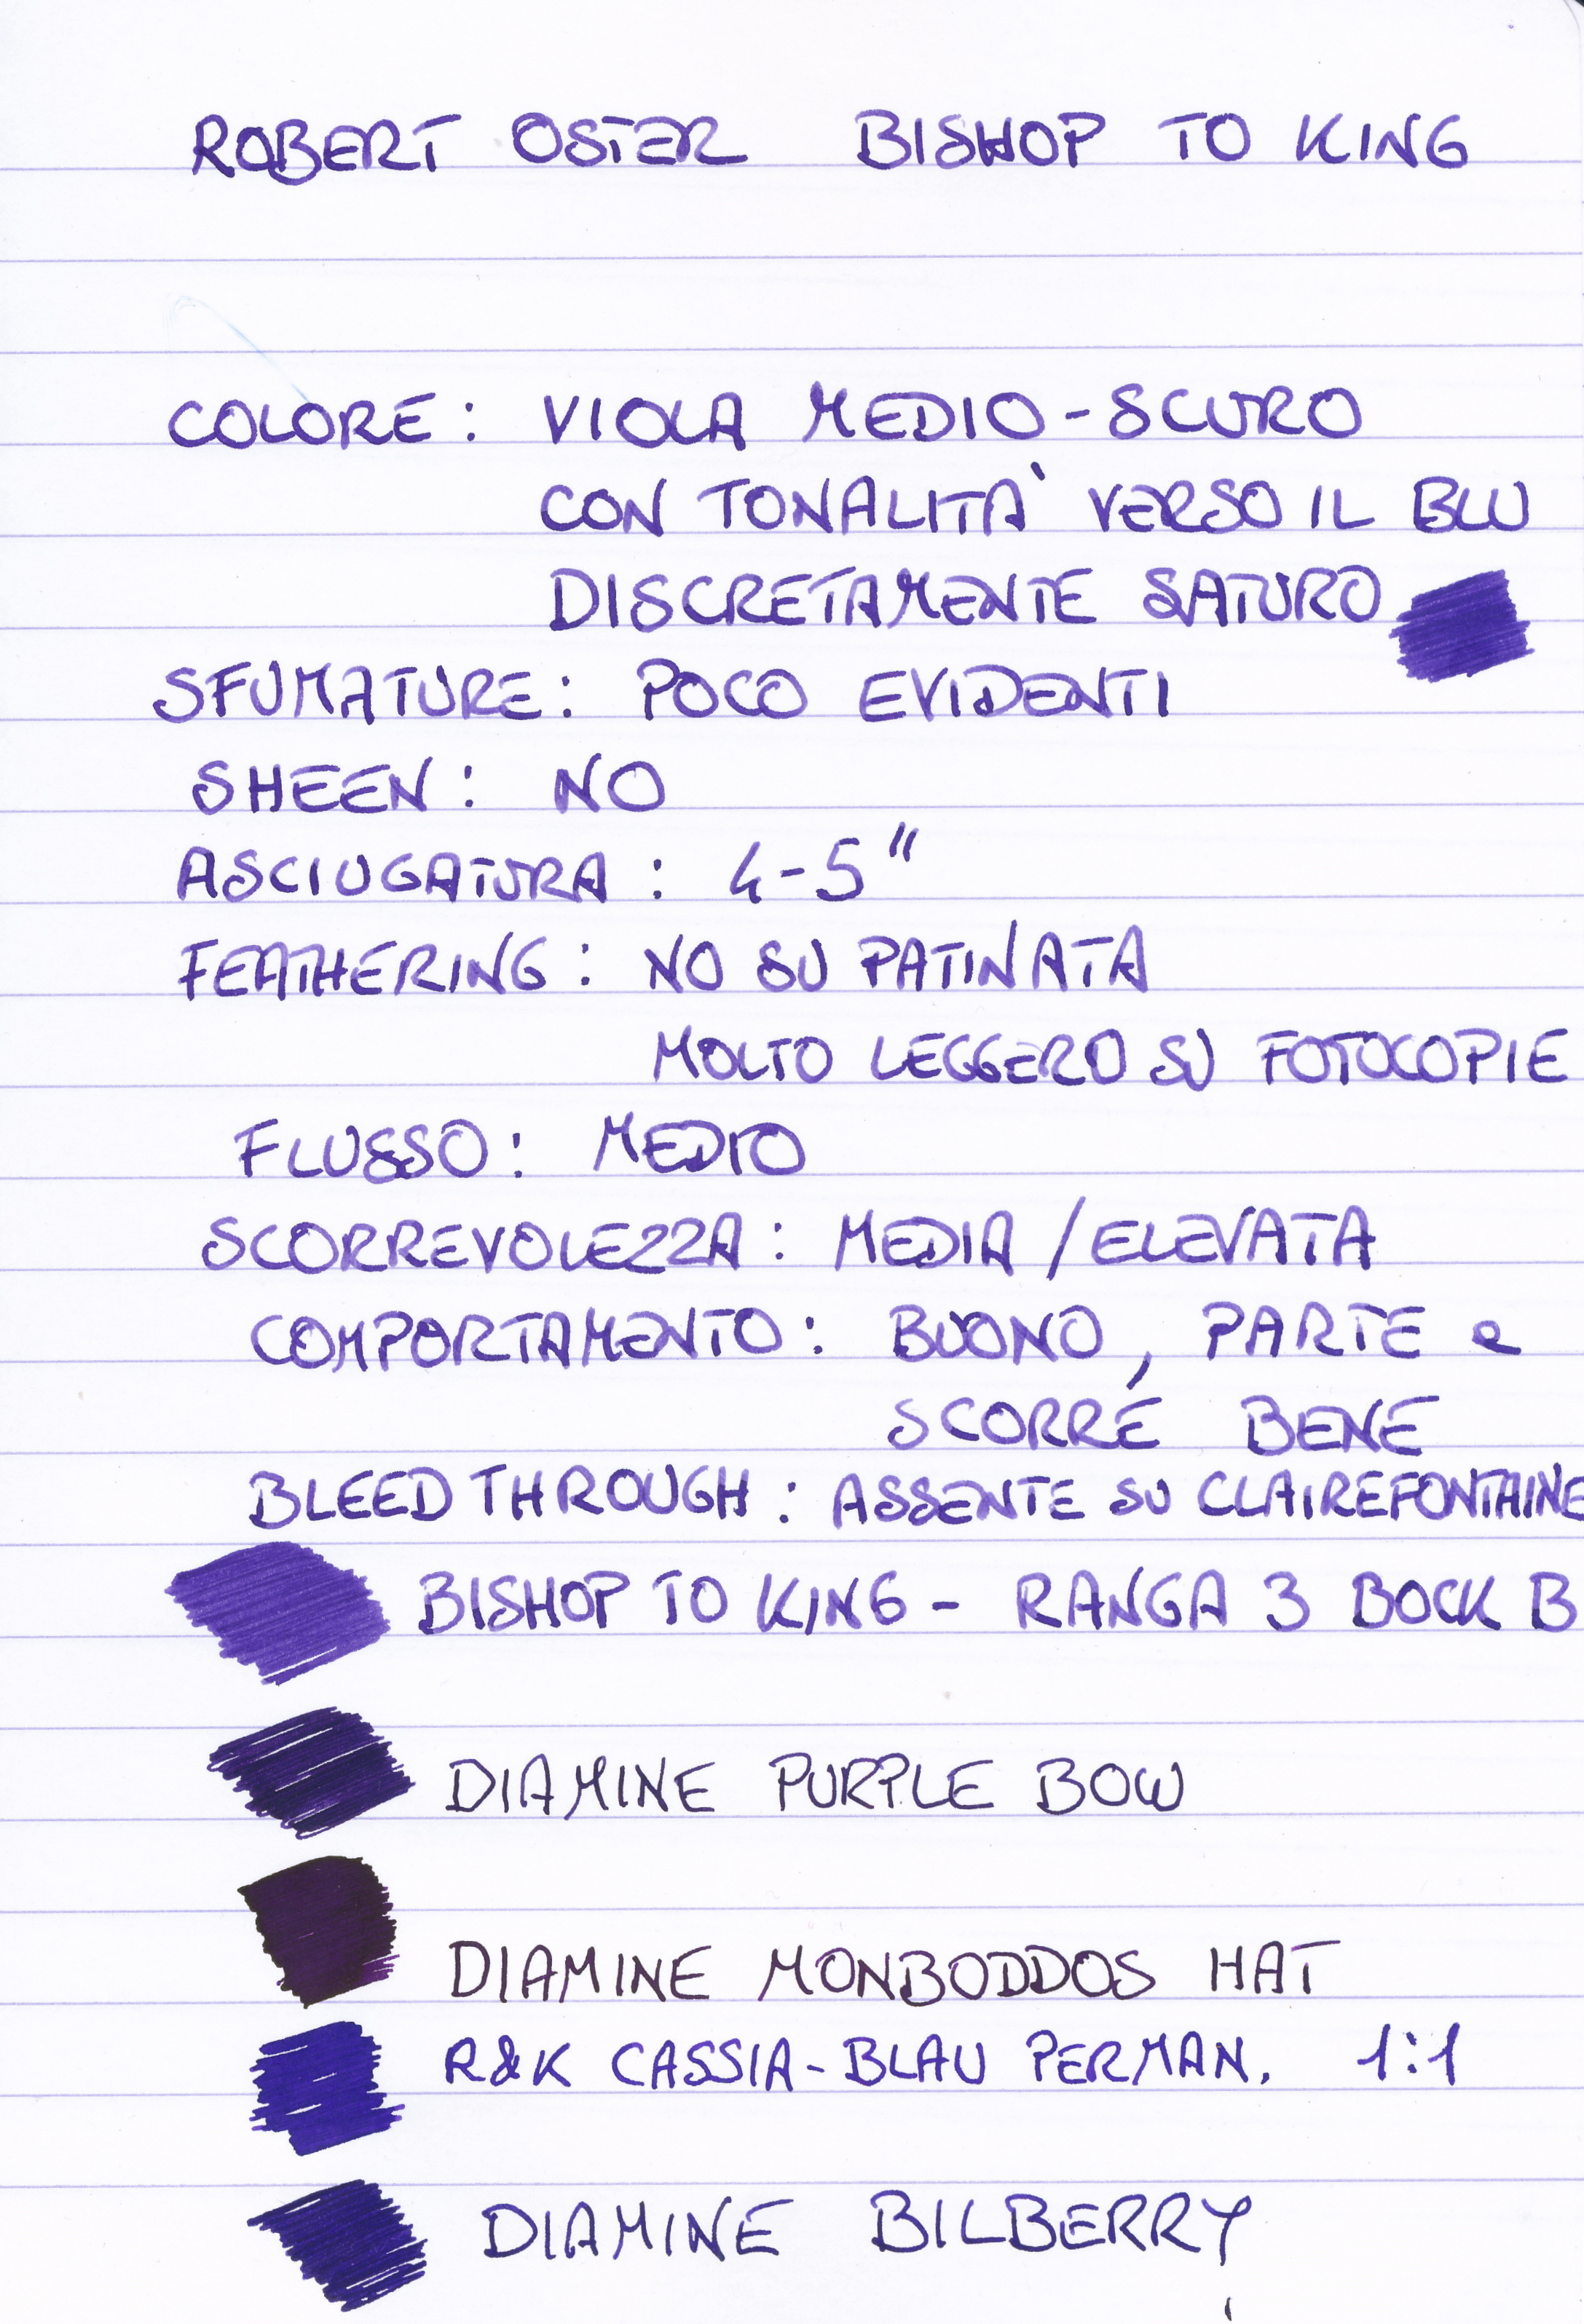 ROBERT OSTER BISHOP TO KING
COLORE: VIOLA MEDIO-SCURO
CON TONALITA' VERSO IL BLU
DISCRETAMENTE SATURO
SFUMATURE: POCO EVIDENTI
SHEEN: NO
ASCIUGATURA: 4-5"
FEATHERING: NO SU PATINATA
MOLTO LEGGERO SU FOTOCOPIE
FLUSSO: MEDIO
SCORREVOLEZZA: MEDIA/ELEVATA
COMPORTAMENTO: BUONO, PARTE e
SCORRE BENE
BLEEDTHROUGH: ASSENTE SU CLAIREFONTAINE
BISHOP TO KING - RANGA 3 BOCK B
DIAMINE PURPLE BOW
DIAMINE MONBODDOS HAT
R&K CASSIA-BLAU PERMAN. 1:1
DIAMINE BILBERRY